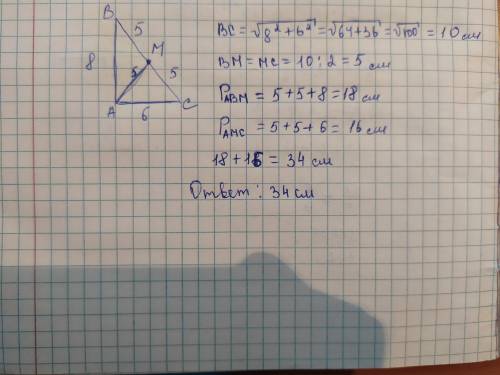 B
5
M
8
5
5
A
6
C
BC = √8²+6² = √64+36 = √100 = 10 см
BM = MC = 10 : 2 = 5 см
P_ABM = 5+5+8 = 18 см
P_AMC = 5+5+6 = 16 см
18+16 = 34 см
Ответ: 34 см